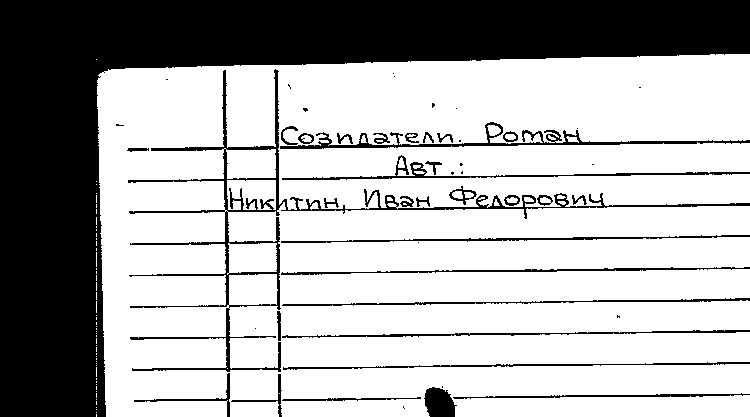 Созидатели. Роман
Авт.:
Никитин, Иван Федорович